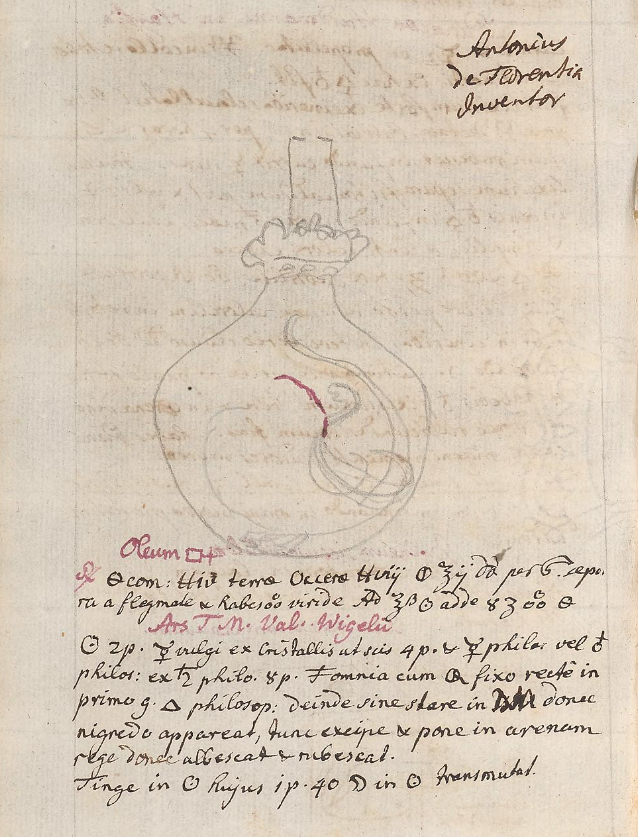 Antonius
de Florentia
Inventor
Oleum
℞ 🜔 com: terræ ☉ ʒij per separa
ra a flegmate & habes viride Ad ʒß ☉ adde 8 ʒ
Ars T. M. Val. Wigelii
☉ 2 p. ☿ vulgi ex Cristallis ut scis 4 p. & ☿ philo: vel ♁
philos: ex ♄ philo. 8 p. omnia cum fixo rectè in
primo g. △ philosop: deinde sine stare in donec
nigredo appareat, tunc excipe & pone in arenam
rege donec albescat & rubescat.
Tinge in ☉ hujus 1 p. 40 ☽ in ☉ transmutat.